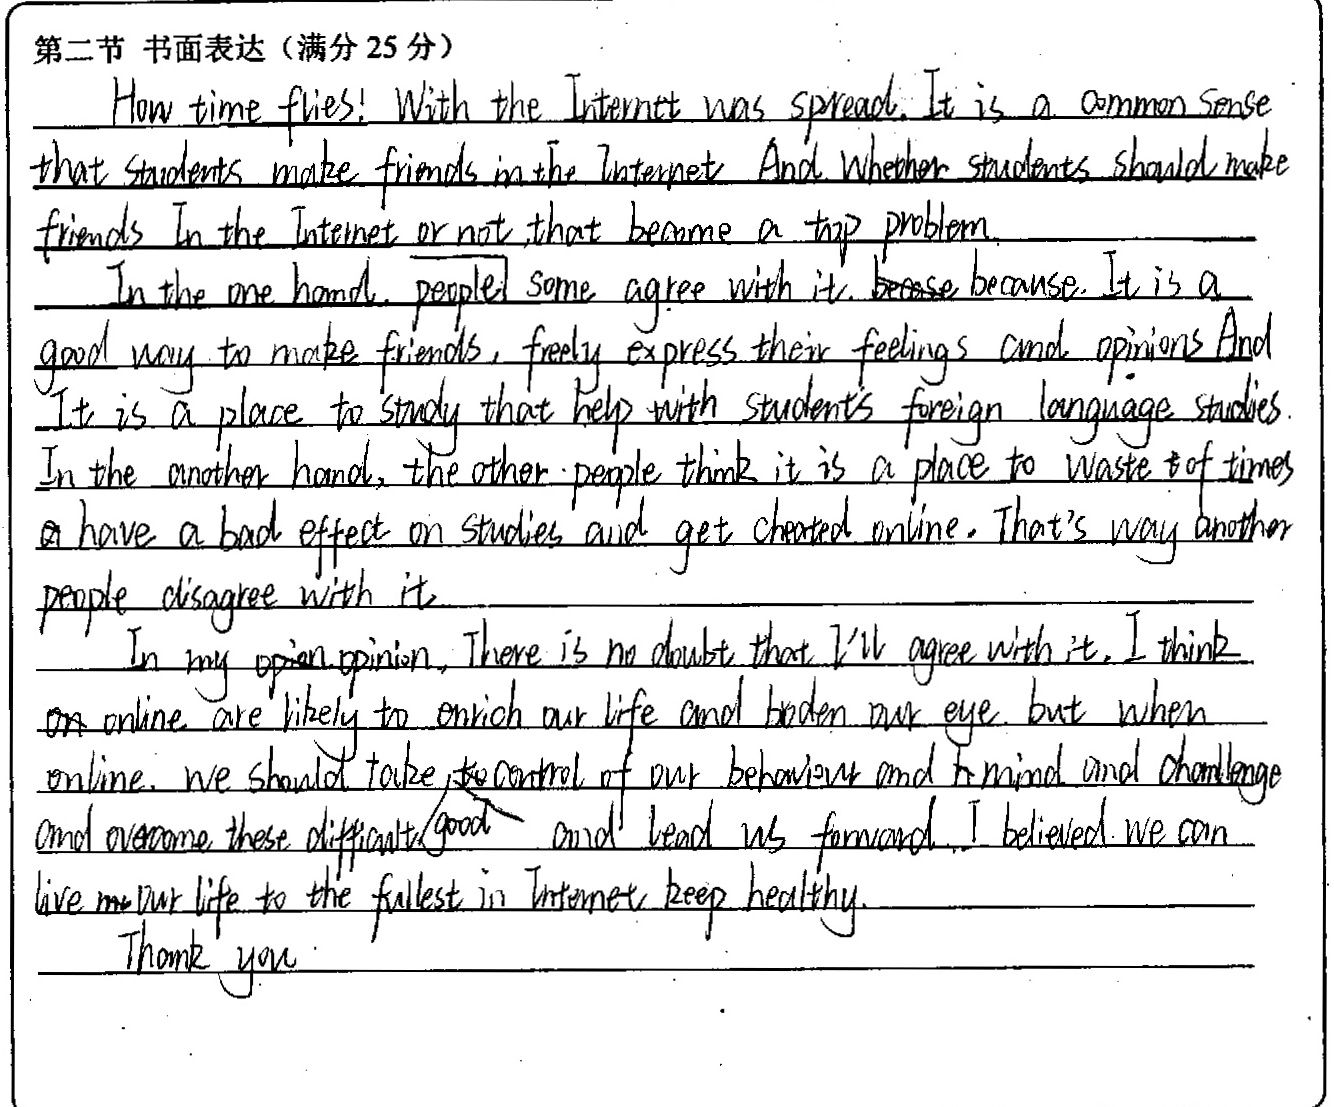 第二节 书面表达（满分 25 分）
How time flies! With the Internet was spread. It is a common sense
that students make friends in the Internet And Whether students should make
friends In the Internet or not, that become a top problem.
In the one hand. people some agree with it. because. It is a
good way to make friends, freely express their feelings and opinions And
It is a place to study that help with student's foreign language studies.
In the another hand, the other people think it is a place to waste of times
have a bad effect on studies and get cheated online. That's way another
people disagree with it.
In my opinion, There is no doubt that I'll agree with it. I think
online are likely to enrich our life and boden our eye. but when
online. we should take good control of our behaviour and mind and challenge
and overcome these difficult and lead us forward. I believed we can
live our life to the fullest in Internet, keep healthy.
Thank you